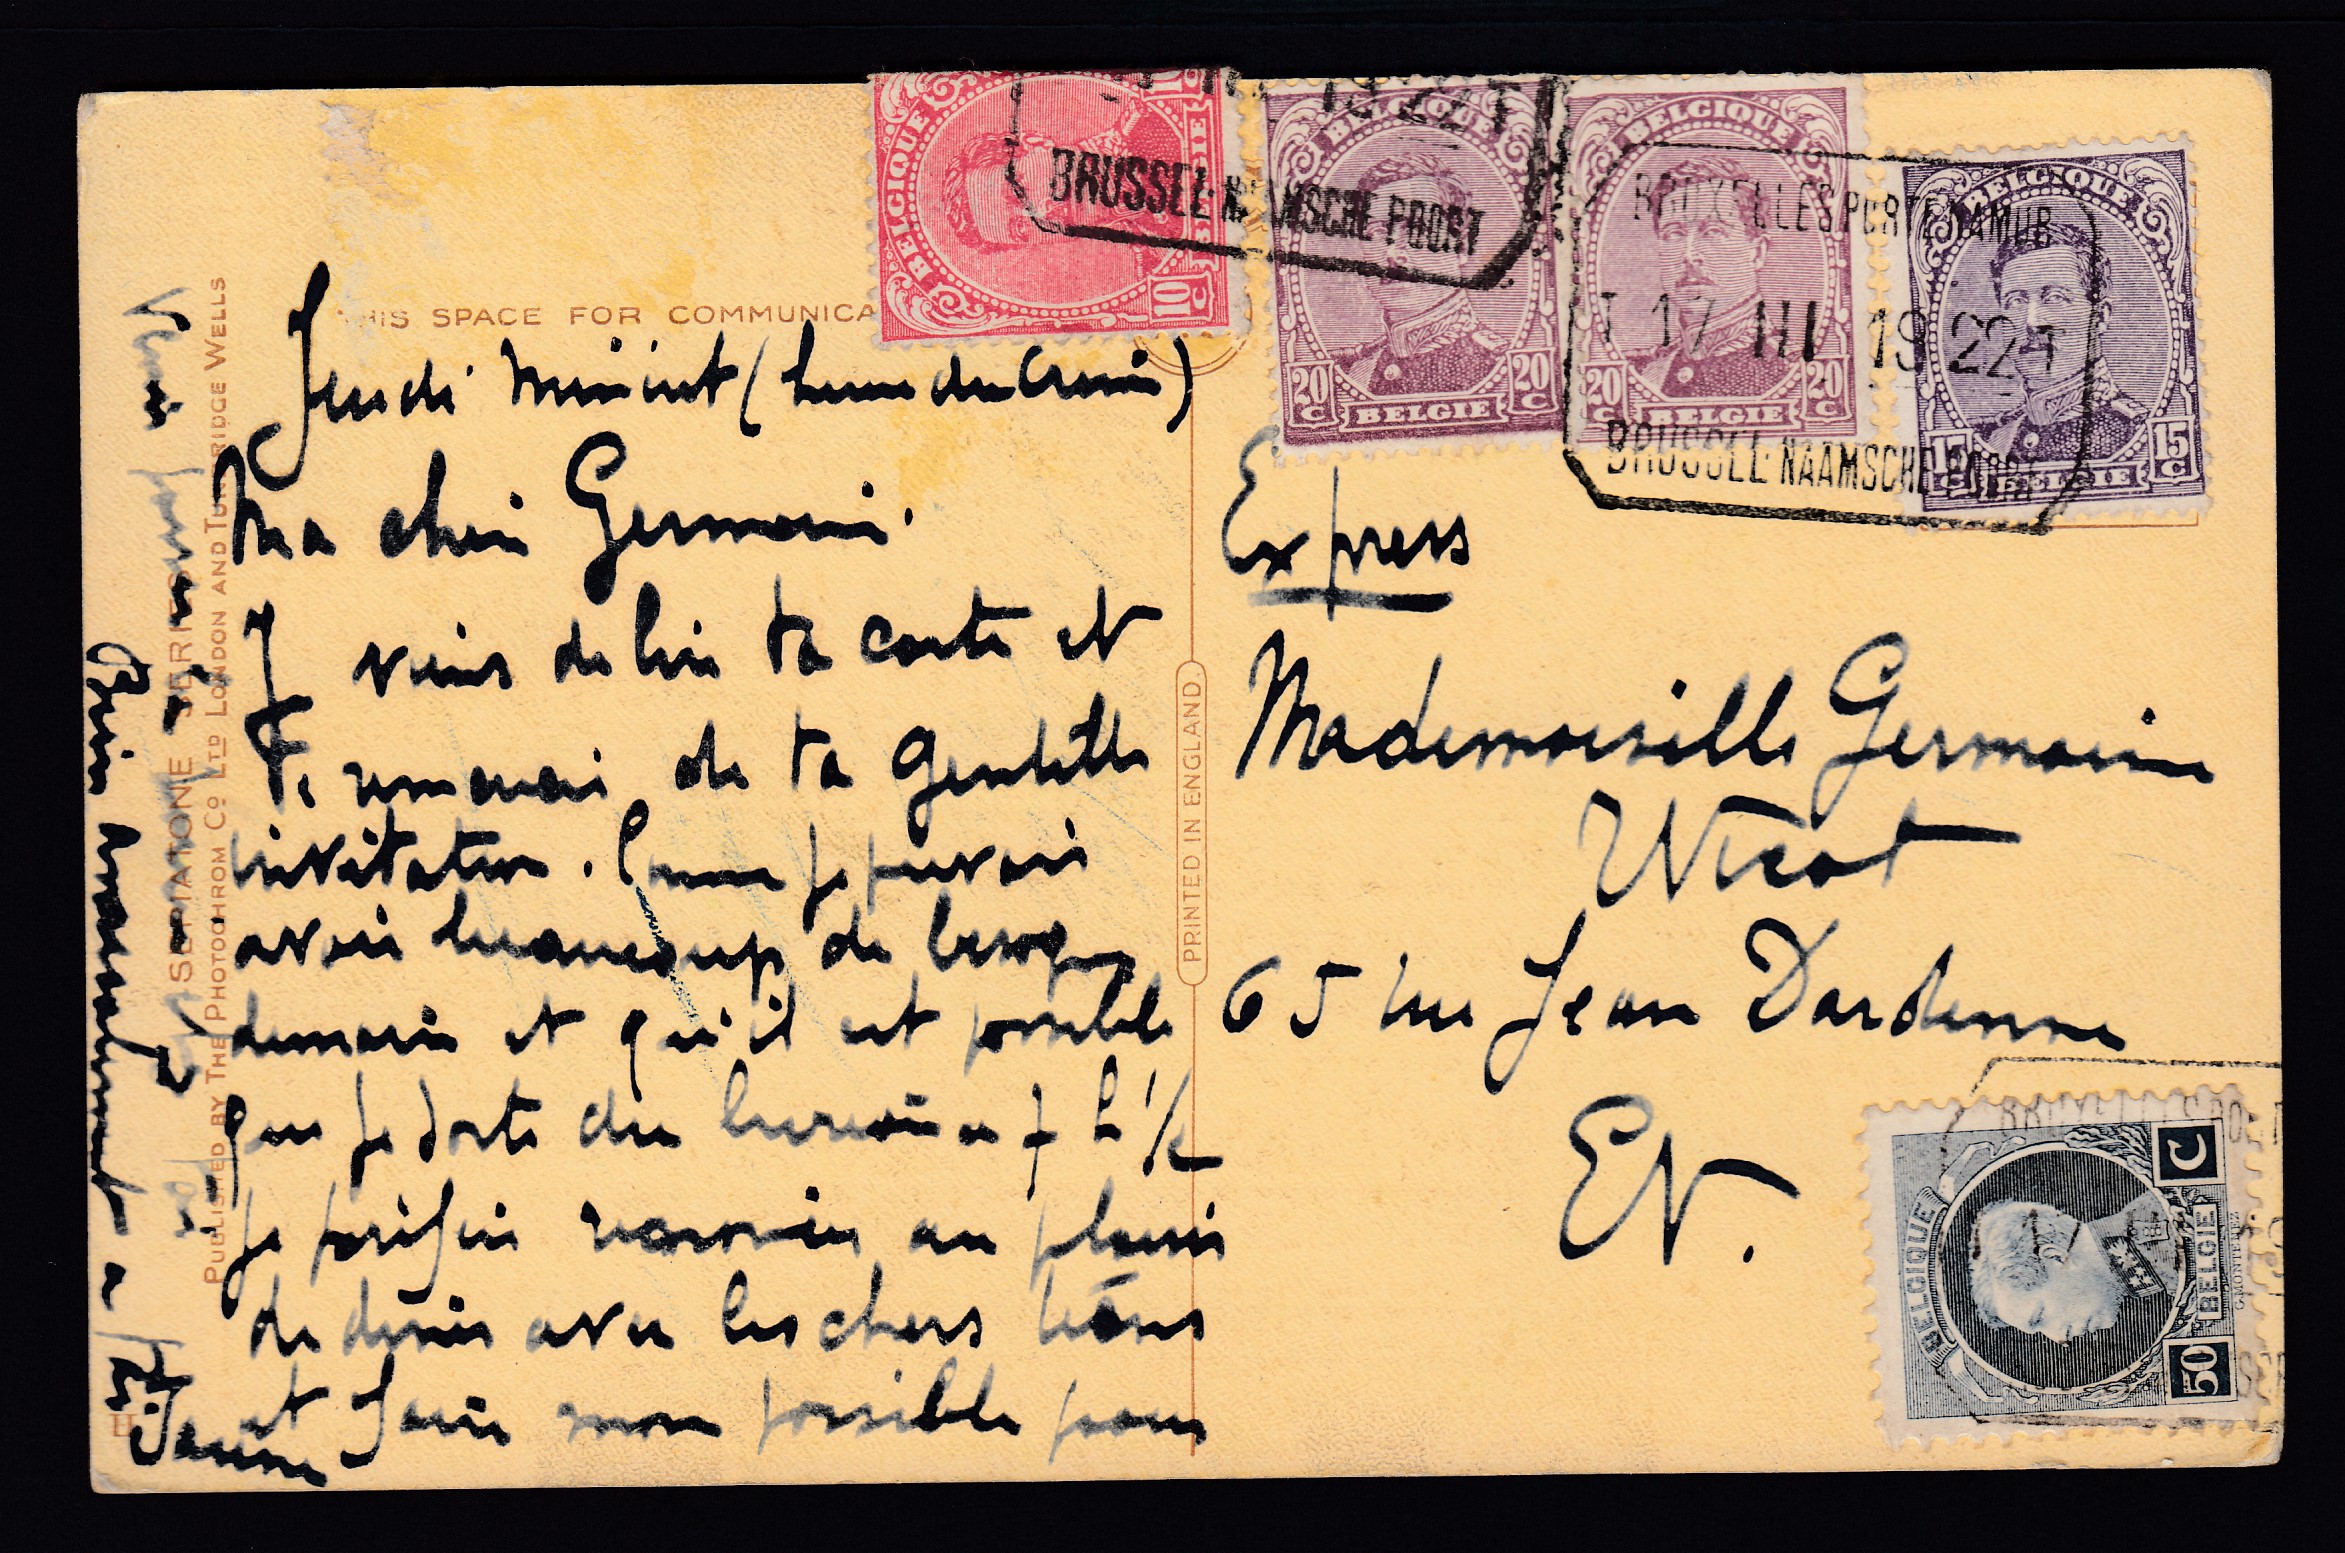 THIS SPACE FOR COMMUNICA
Jeudi minuit (heure du Crime)
Ma chère Germaine.
Je viens de lire ta carte et
te remercie de ta gentille
invitation. Comme je pourrais
avoir beaucoup de besogne
demain et qu'il est possible
que je sorte du bureau à 7 h 1/2
je préfère renoncer au plaisir
de dîner avec les chers
et faire mon possible pour
Bien
SEPIATONE SERIES
PUBLISHED BY THE PHOTOCHROM CO LTD LONDON AND TUNBRIDGE WELLS
PRINTED IN ENGLAND.
BELGIQUE
BELGIE
10 C
BELGIQUE
20 C
20 C
BELGIE
BELGIQUE
20 C
20 C
BELGIE
BELGIQUE
15 C
15 C
BELGIE
19 22 T
BRUSSEL-NAAMSCHE POORT
BRUXELLES PORTE NAMUR
T 17 III 19 22 T
BRUSSEL-NAAMSCHE POORT
Express
Mademoiselle Germaine
65 rue Jean Dardenne
EV.
BELGIQUE
BELGIE
50 C
G. MONTENEZ